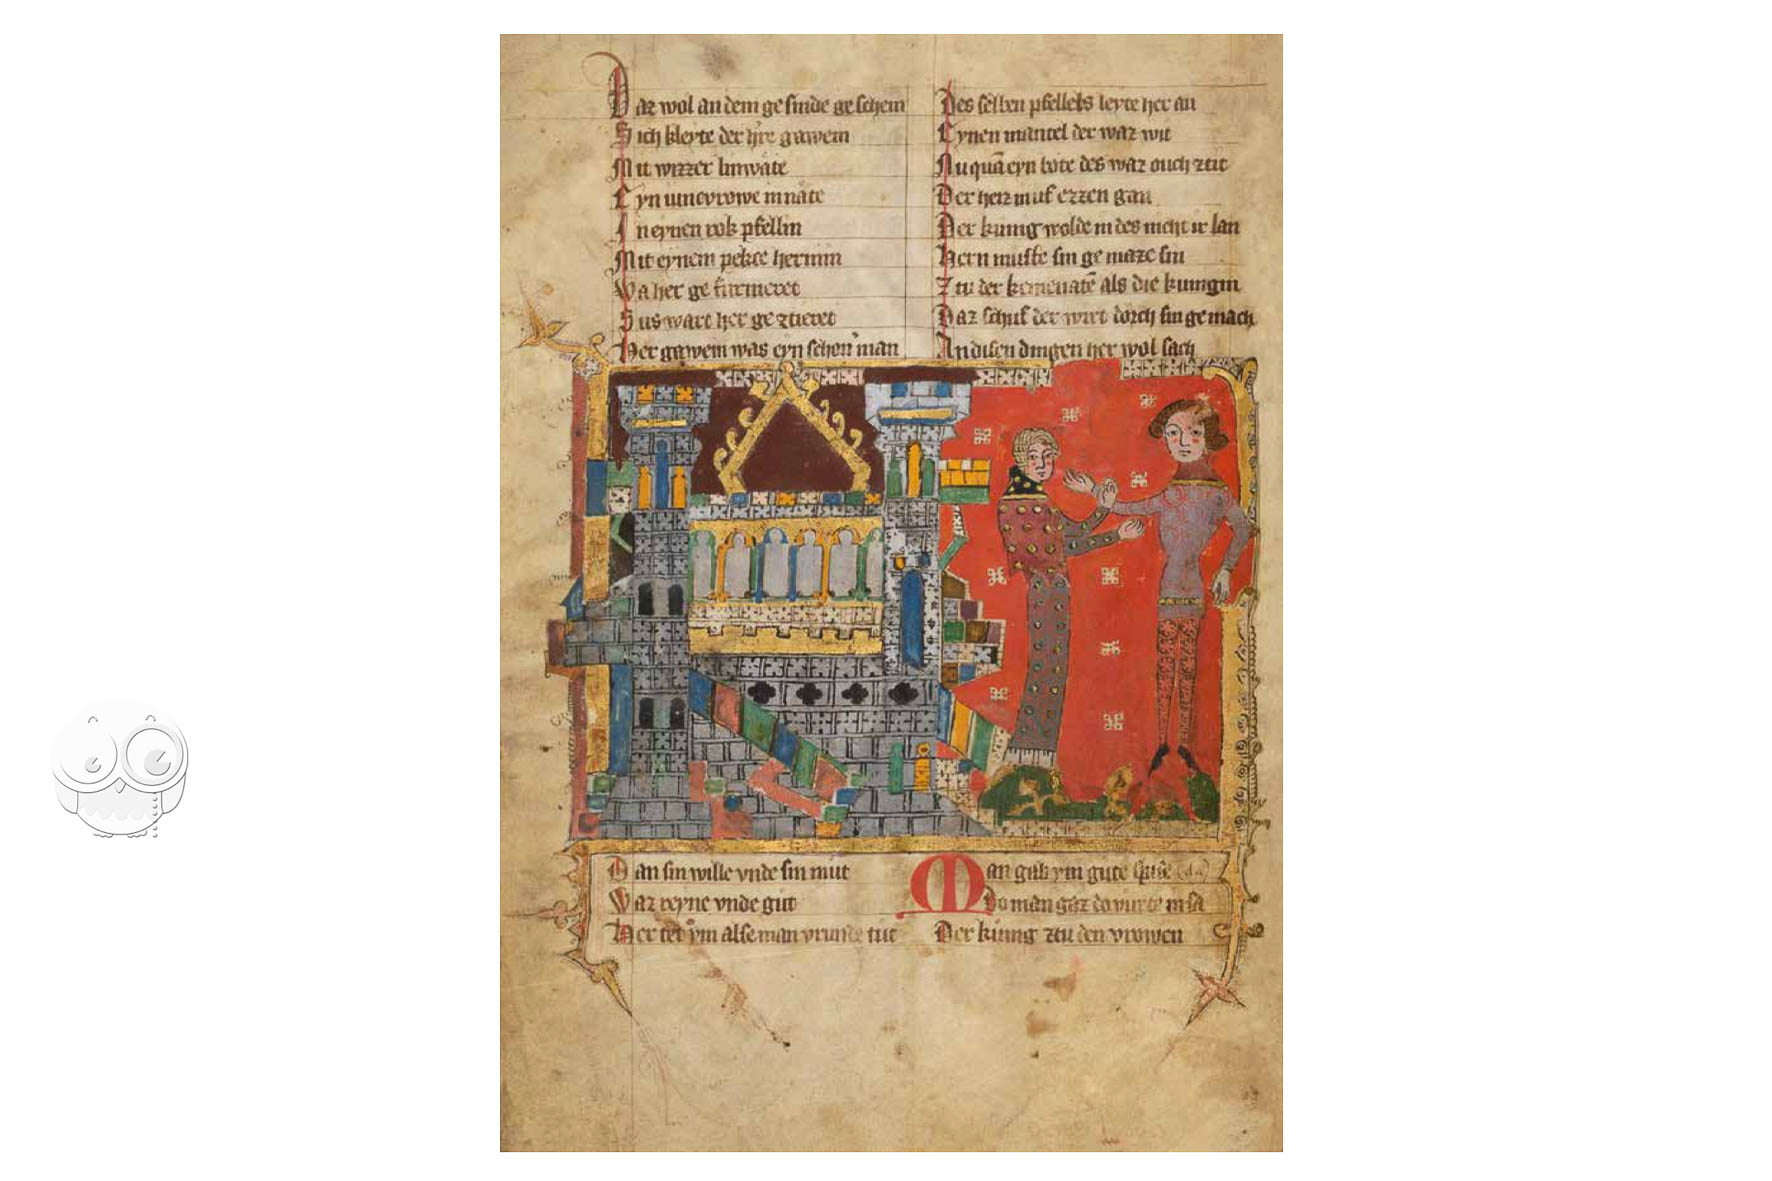 Daz wol an dem ge sinde ge schein
Sich kleyte der h're gawein
Mit wizzer linwate
Eyn iuncvrowe in nate
In eynen rok pfellin
Mit eynem pelcze hermin
Wa her ge furnieret
Sus wart her ge ztieret
Her gawein was eyn schon man
Des selben pfellels leyte her an
Eynen mantel der waz wit
Nu quā eyn bote des waz ouch ztit
Der hiez in uf ezzen gan
Der kunig wolde in des nicht ir lan
Hern muste sin ge maze sin
Ztu der kemenatē als die kunigin
Daz schuf der wirt dorch sin ge mach
An disen dingen her wol sach
Dan sin wille vnde sin mut
Waz reyne vnde gut
Her tet ym alse man vrunde tut
Man gab ym gute spise
Do man gaz do vurte in sa
Der kunig ztu den vrowen